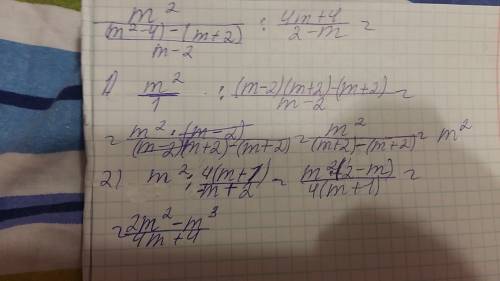 m²/(((m²-4)-(m+2))/(m-2)) : (4m+4)/(2-m) =
1) m²/1 : ((m-2)(m+2)-(m+2))/(m-2) =
= (m²·(m-2))/((m-2)(m+2)-(m+2)) = m²/((m+2)-(m+2)) = m²
2) m² : 4(m+1)/(-m+2) = m²(2-m)/(4(m+1)) =
= (2m²-m³)/(4m+4)